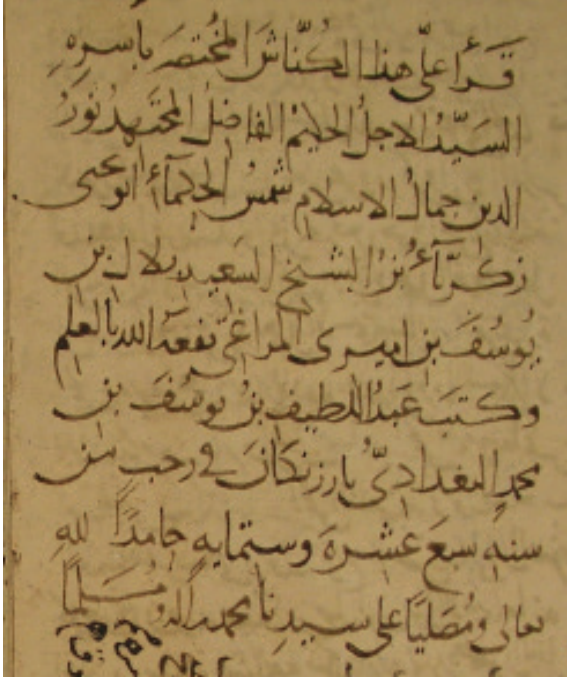 قرأ علىّ هذا الكُنّاشَ المُختصَر بأسرِهِ
السَيّدُ الاجلُّ الحكيمُ الفاضلُ المجتهدُ نورُ
الدين جمالُ الاسلام شمسُ الحكمآءِ ابو يحيى
زكريّآءُ بنُ الشيخ السَعيد بلال بن
يوسُفَ بن اميرى المراغىّ نفعَهُ الله بالعلم
وكتبَ عَبدُ اللطيف بنُ يوسُفَ بن
محمدٍ البغدادىّ بارزنكانَ فى رجب من
سنه سبعَ عشرة وستمايه حامِدًا للهِ
تعالى ومُصَليًا على سيدنا محمد واله ومُسَلِّمًا